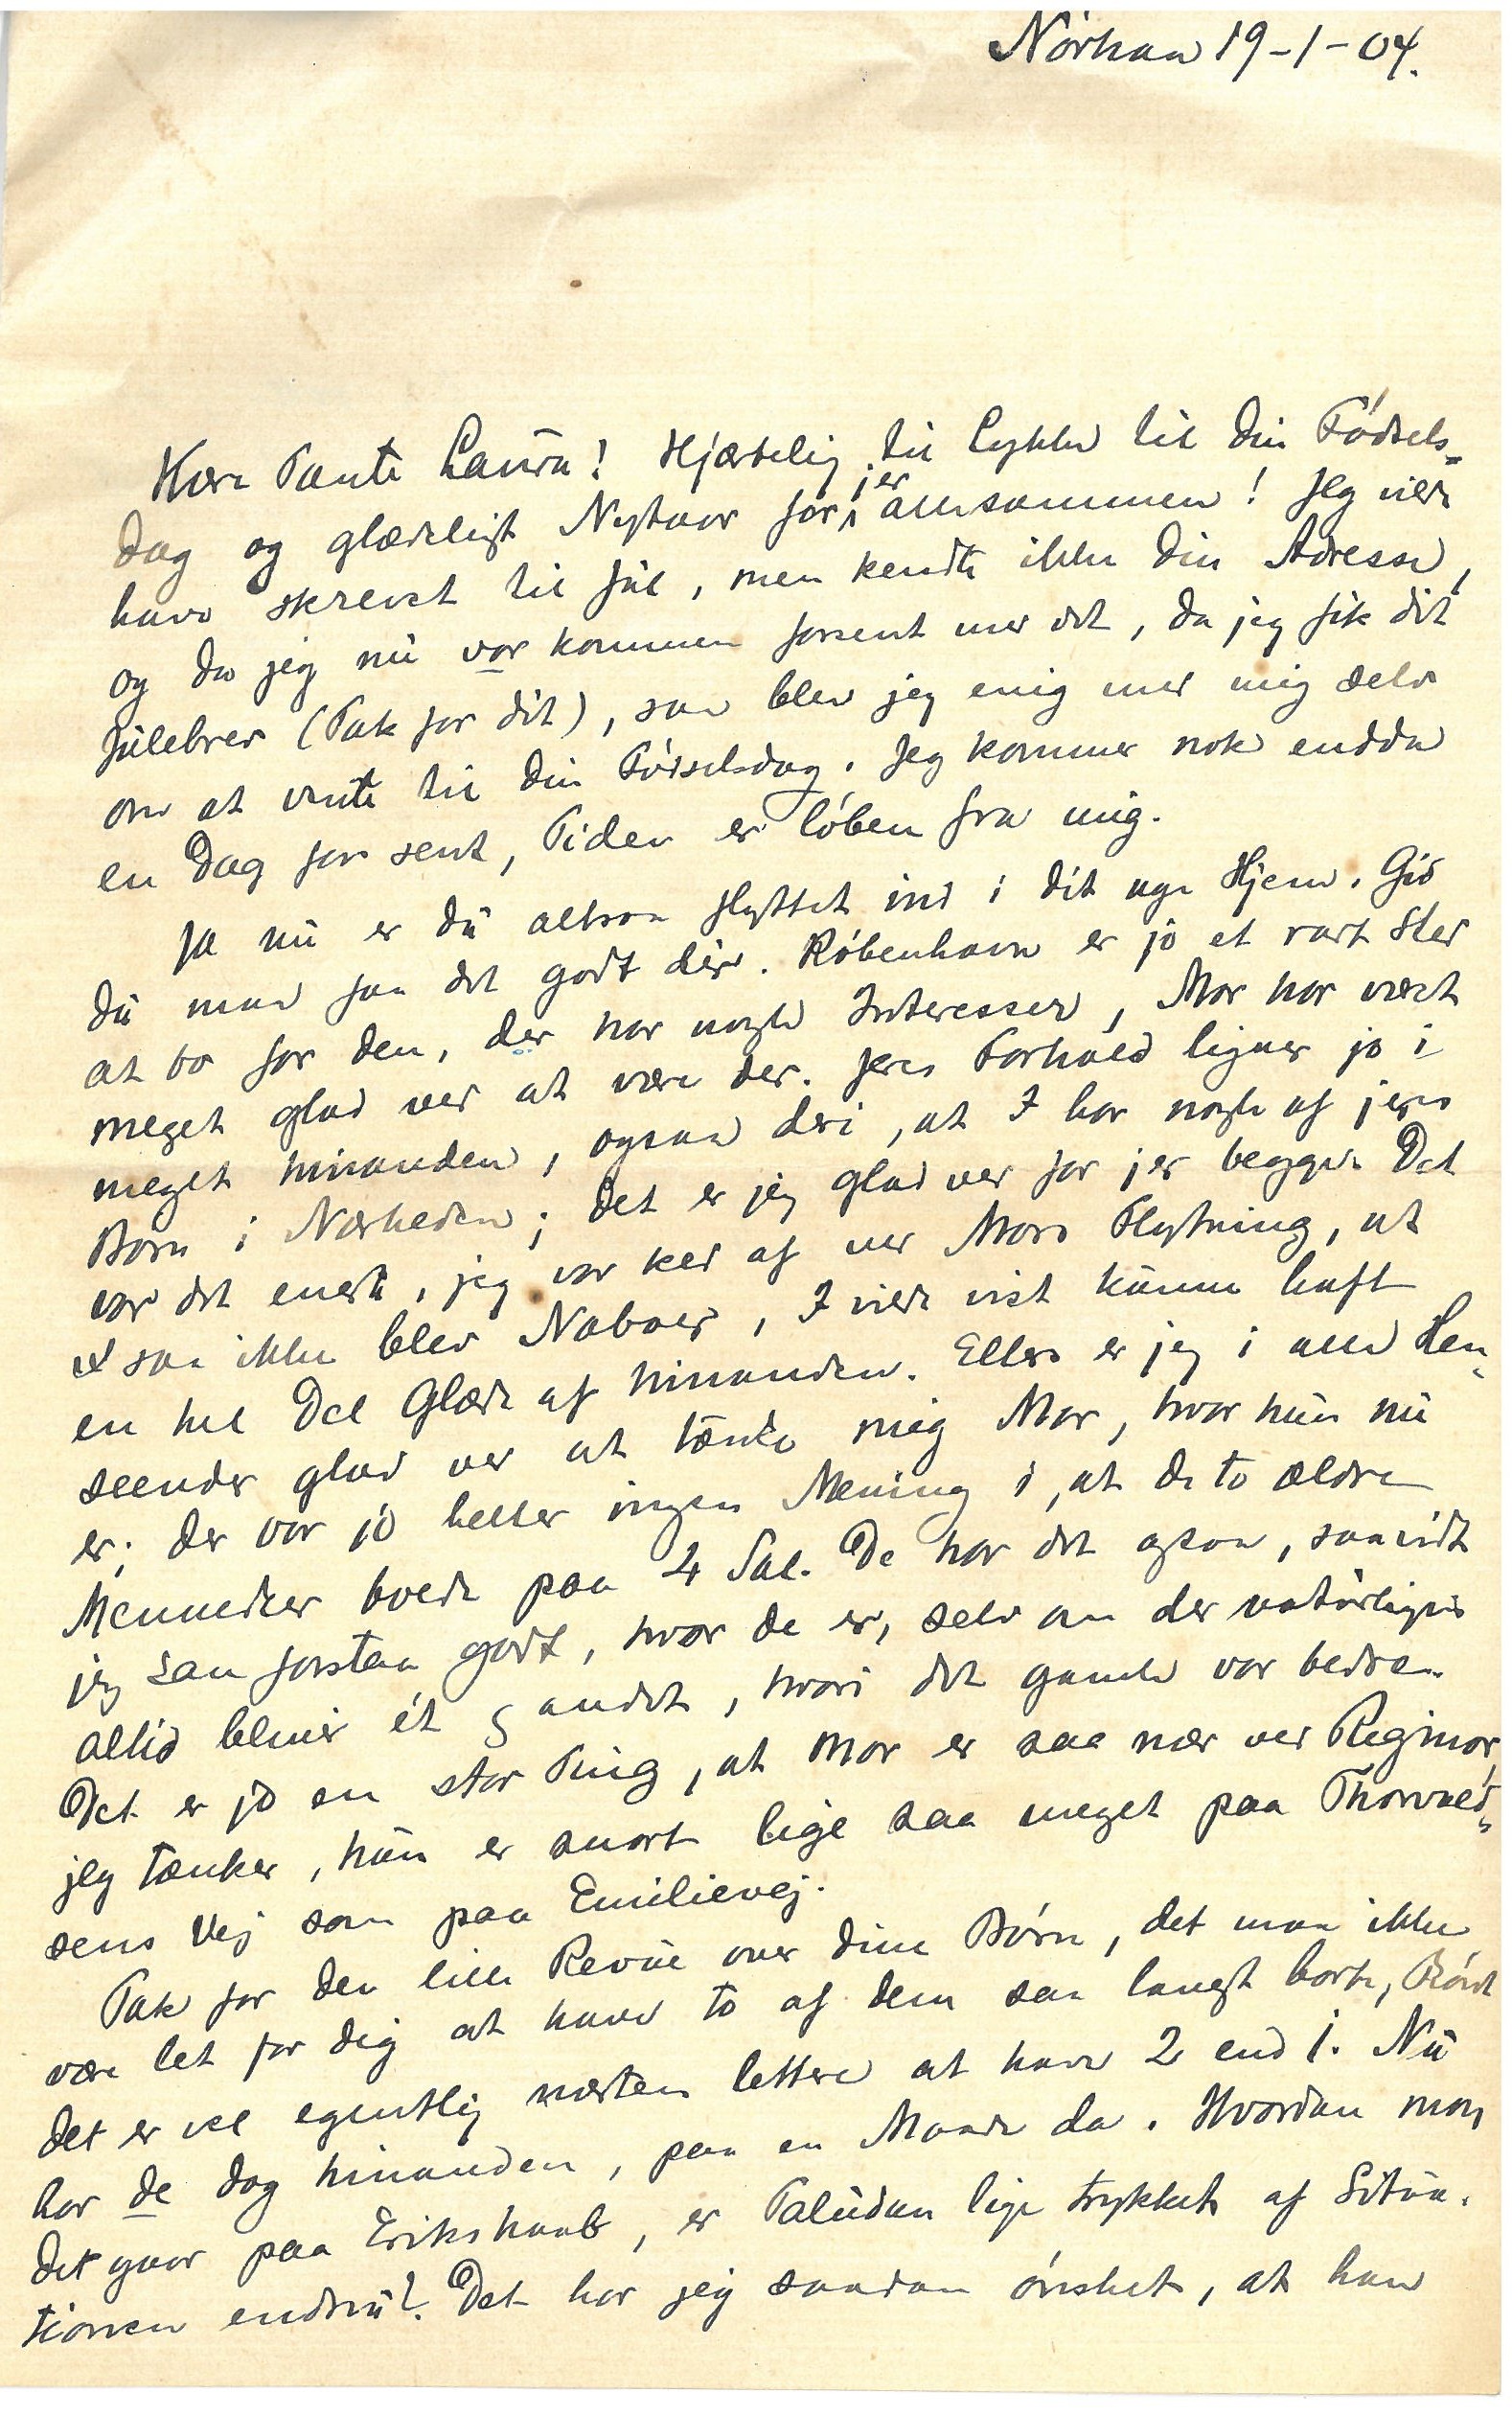 Nörhaa 19-1-04.
Kære Tante Laura! Hjærtelig til Lykke til din Fødsels-
dag og glædeligt Nytaar for jer allesammen! Jeg vilde
have skrevet til Jul, men kendte ikke din Adresse,
og da jeg nu var kommen forsent med det, da jeg fik dit
Julebrev (Tak for dit), saa blev jeg enig med mig selv
om at vente til din Fødselsdag. Jeg kommer nok endda
en Dag for sent, Tiden er løben fra mig.
Ja nu er du altsaa flyttet ind i dit nye Hjem. Gid
du maa faa det godt dér. København er jo et rart Sted
at bo for den, der har nogle Interesser, Mor har været
meget glad ved at være der. Jeres Forhold ligner jo i
meget hinanden, ogsaa deri, at I har nogle af jeres
Børn i Nærheden; det er jeg glad ved for jer begge. Det
var det eneste, jeg var ked af ved Mors Flytning, at
I saa ikke blev Naboer, I vilde vist kunne haft
en hel Del Glæde af hinanden. Ellers er jeg i alle Hen-
seender glad ved at tænke mig Mor, hvor hun nu
er; der var jo heller ingen Mening i, at de to ældre
Mennesker boede paa 4 Sal. De har det ogsaa, saavidt
jeg kan forstaa godt, hvor de er, selv om der naturligvis
altid bliver ét & andet, hvori det gamle var bedre.
Det er jo en stor Ting, at Mor er saa nær ved Regimor,
jeg tænker, hun er snart lige saa meget paa Thorvald-
sens Vej som paa Emilievej.
Tak for den lille Revue over dine Børn, det maa ikke
være let for dig at have to af dem saa langt borte,
det er vel egentlig næsten lettere at have 2 end 1. Nu
har de dog hinanden, paa en Maade da. Hvordan mon
det gaar paa Erikshaab, er Paludan lige trykket af Situa-
tionen endnu? Det har jeg saadan ønsket, at han